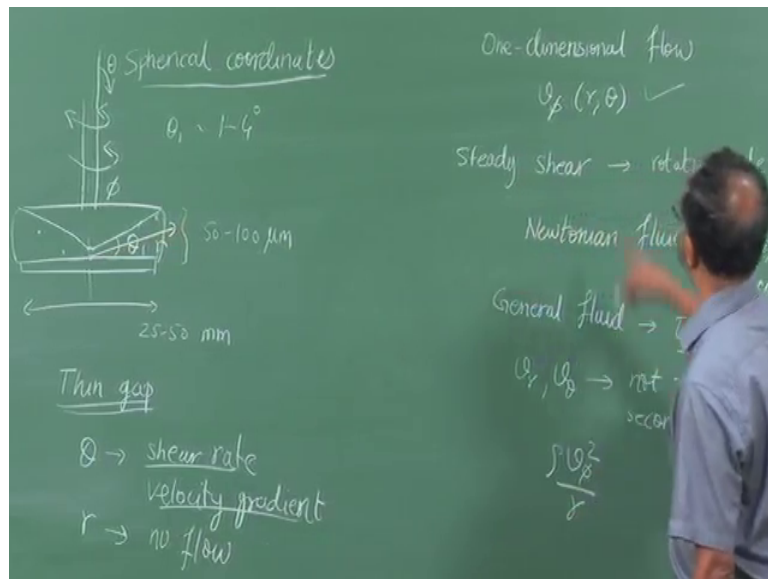 Spherical coordinates
θ
θ₁ ~ 1-4°
φ
θ₁
r
50-100 μm
25-50 mm
Thin gap
θ → shear rate
velocity gradient
r → no flow
One-dimensional flow
v_φ (r, θ) ✓
Steady shear →
Newtonian
General fluid →
v_r, v_θ → not
ρ v_φ² / r